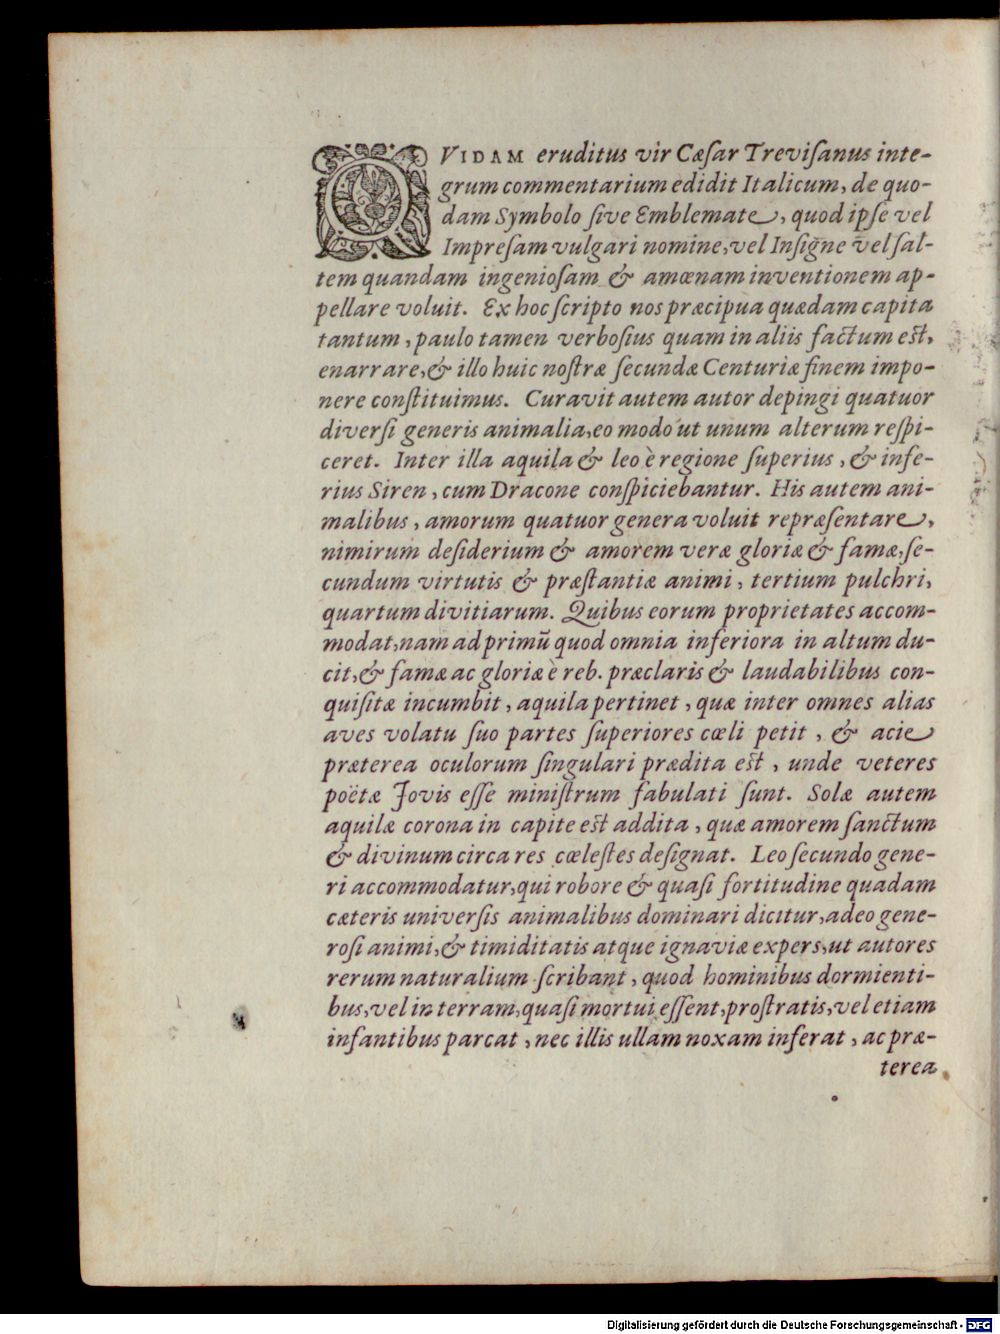 QVIDAM eruditus vir Cæſar Treviſanus inte-
grum commentarium edidit Italicum, de quo-
dam Symbolo ſive Emblemate, quod ipſe vel
Impreſam vulgari nomine, vel Inſigne vel ſal-
tem quandam ingenioſam & amœnam inventionem ap-
pellare voluit. Ex hoc ſcripto nos præcipua quædam capita
tantum, paulo tamen verboſius quam in aliis factum eſt,
enarrare, & illo huic noſtræ ſecundæ Centuriæ finem impo-
nere conſtituimus. Curavit autem autor depingi quatuor
diverſi generis animalia, eo modo ut unum alterum reſpi-
ceret. Inter illa aquila & leo è regione ſuperius, & infe-
rius Siren, cum Dracone conſpiciebantur. His autem ani-
malibus, amorum quatuor genera voluit repræſentare,
nimirum deſiderium & amorem veræ gloriæ & famæ, ſe-
cundum virtutis & præſtantiæ animi, tertium pulchri,
quartum divitiarum. Quibus eorum proprietates accom-
modat, nam ad primū quod omnia inferiora in altum du-
cit, & famæ ac gloriæ è reb. præclaris & laudabilibus con-
quiſitæ incumbit, aquila pertinet, quæ inter omnes alias
aves volatu ſuo partes ſuperiores cœli petit, & acie
præterea oculorum ſingulari prædita eſt, unde veteres
poëtæ Jovis eſſe miniſtrum fabulati ſunt. Solæ autem
aquilæ corona in capite eſt addita, quæ amorem ſanctum
& divinum circa res cœleſtes deſignat. Leo ſecundo gene-
ri accommodatur, qui robore & quaſi fortitudine quadam
cæteris univerſis animalibus dominari dicitur, adeo gene-
roſi animi, & timiditatis atque ignaviæ expers, ut autores
rerum naturalium ſcribant, quod hominibus dormienti-
bus, vel in terram, quaſi mortui eſſent, proſtratis, vel etiam
infantibus parcat, nec illis ullam noxam inferat, ac præ-
terea
Digitalisierung gefördert durch die Deutsche Forschungsgemeinschaft - DFG